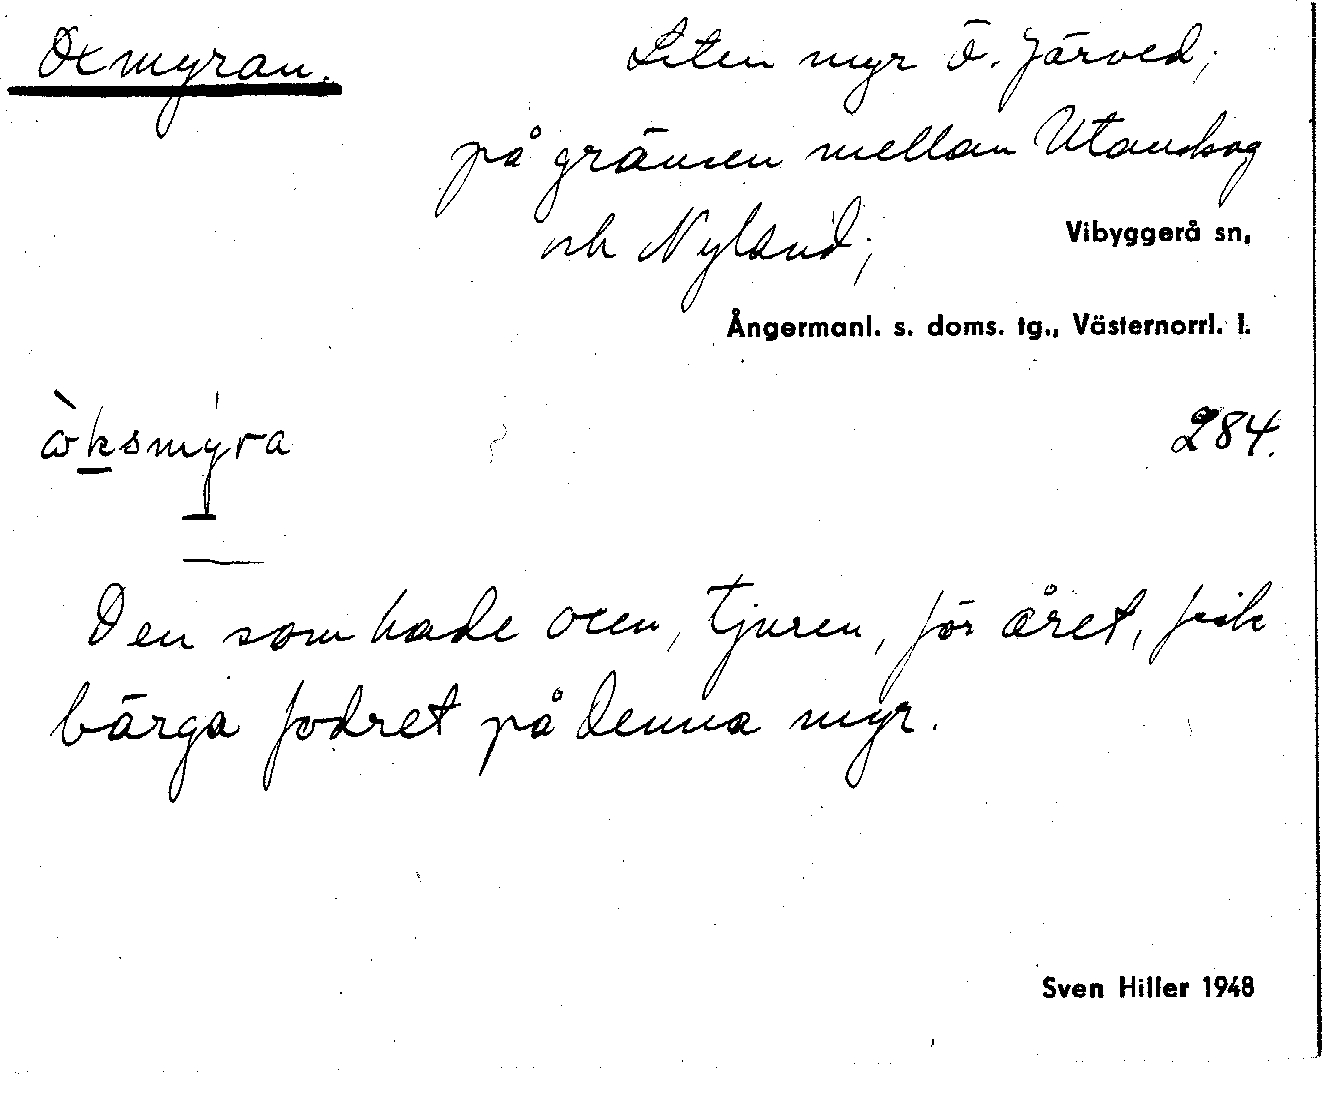 Oxmyran.
Liten myr Ö. Järved;
på gränsen mellan Utanskog
och Nyland;
Vibyggerå sn,
Ångermanl. s. doms. tg., Västernorrl. l.
284.
Den som hade oxen, tjuren, för året, fick
bärga fodret på denna myr.
Sven Hiller 1948